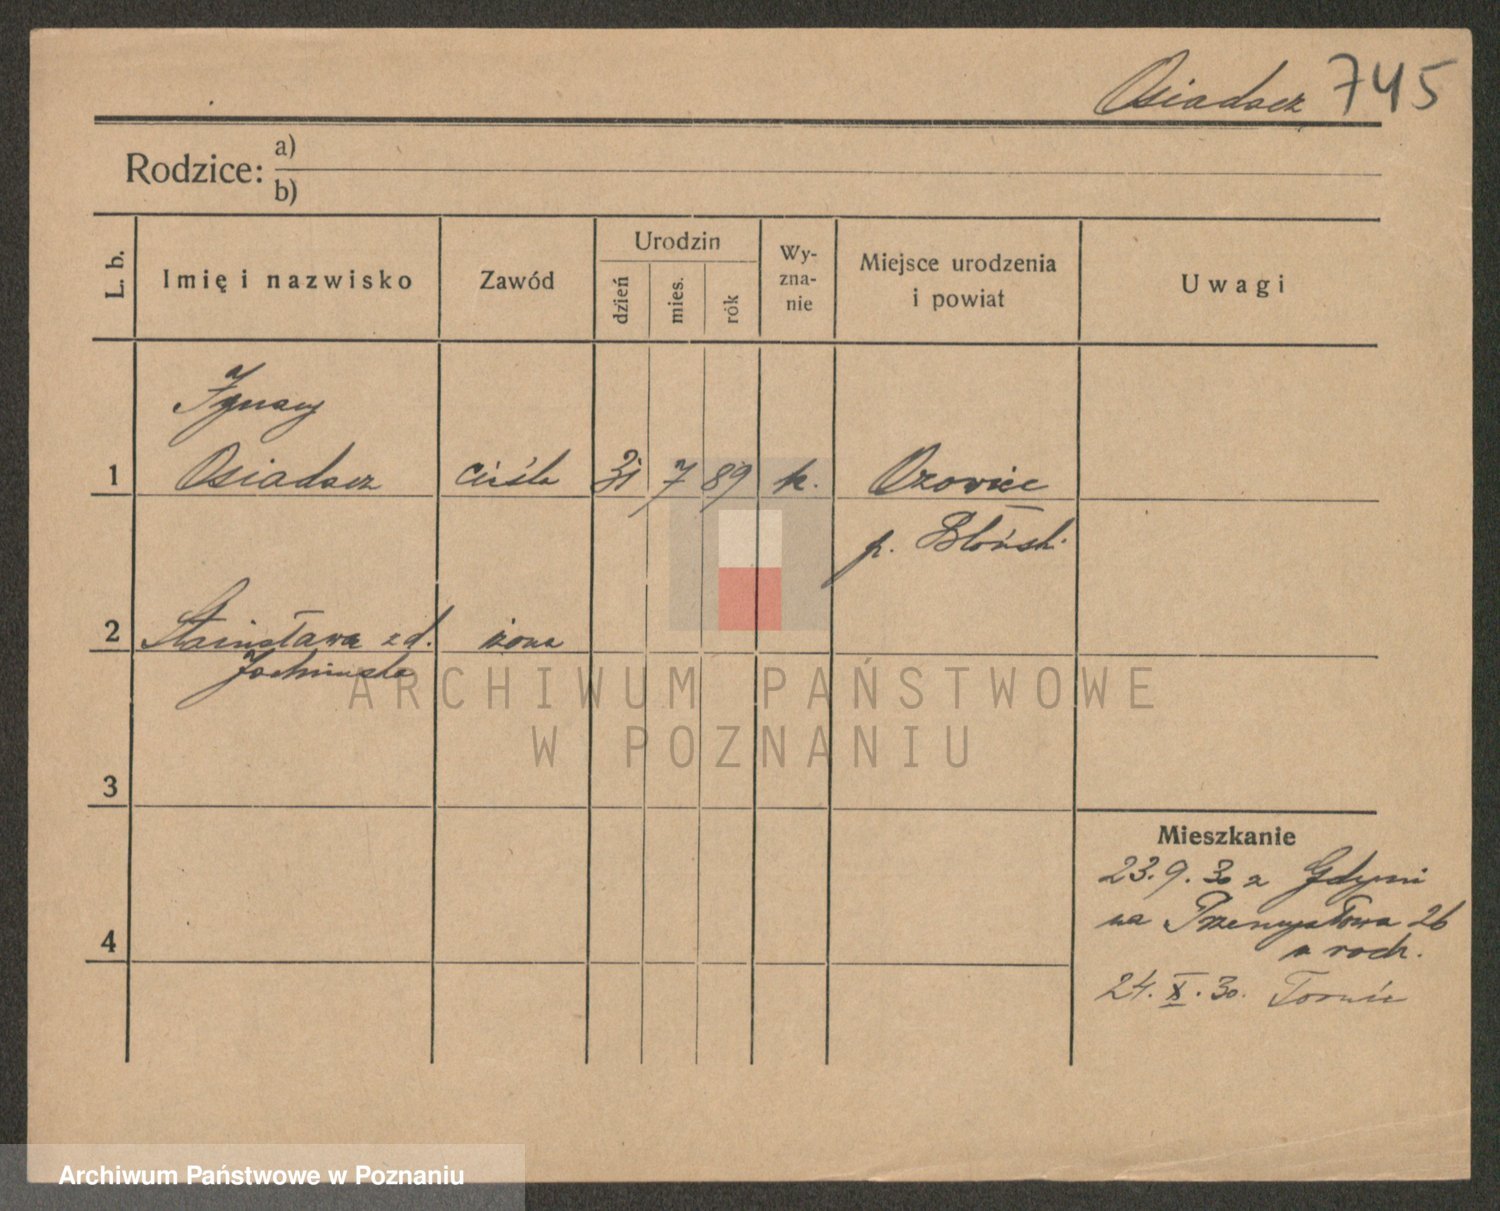 Osiadacz 745
Rodzice: a)
b)
L. b.
Imię i nazwisko
Zawód
Urodzin
dzień
mies.
rók
Wy-
zna-
nie
Miejsce urodzenia
i powiat
Uwagi
Ignacy
1 Osiadacz cieśla 31 7 89 k.
p. Błoński
2 Stanisława z d. żona
3
4
Mieszkanie
23.9.30 z Gdyni
na Przemysłowa 26
24.X.30.
ARCHIWUM PAŃSTWOWE
W POZNANIU
Archiwum Państwowe w Poznaniu